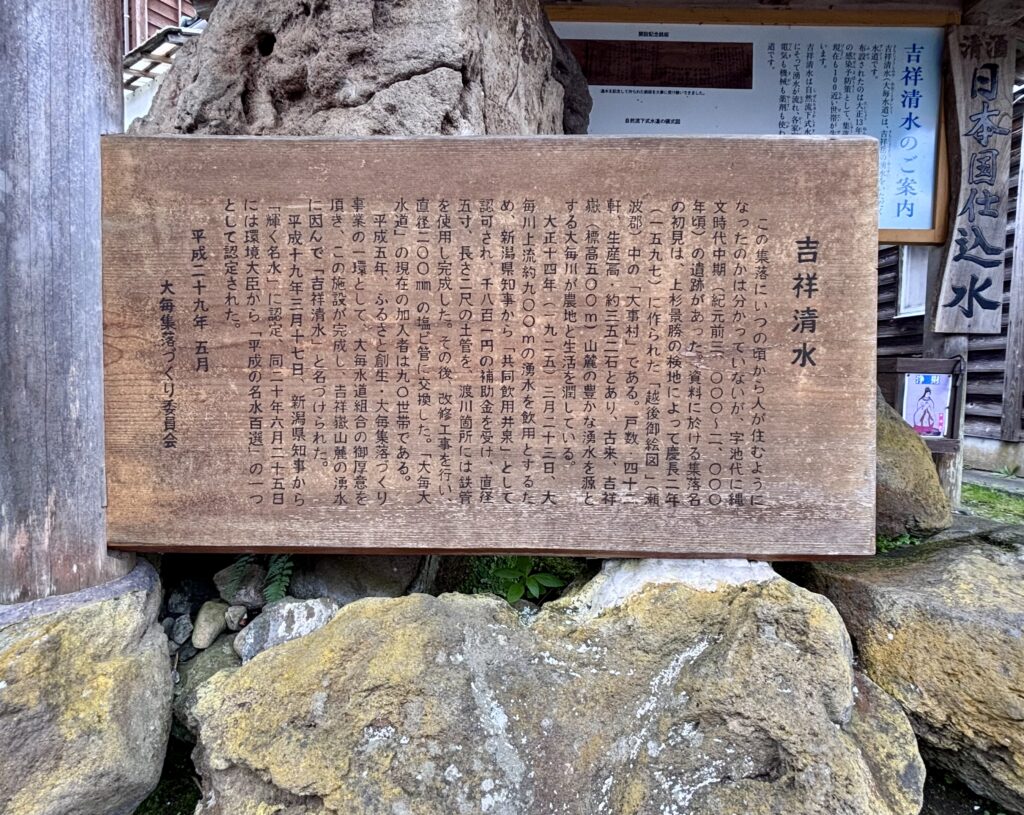 吉祥清水
この集落にいつの頃から人が住むように
なったのかは分かっていないが、字池代に縄
文時代中期（紀元前三、〇〇〇～二、〇〇〇
年頃）の遺跡があった。資料に於ける集落名
の初見は、上杉景勝の検地によって慶長二年
（一五九七）に作られた「越後御絵図」（瀬
波郡）中の「大事村」である。戸数 四十二
軒、生産高・約三五二石とあり、古来、吉祥
嶽（標高五〇〇ｍ）山麓の豊かな湧水を源と
する大毎川が農地と生活を潤している。
大正十四年（一九二五）三月二十三日、大
毎川上流約九〇〇ｍの湧水を飲用とするた
め、新潟県知事から「共同飲用井泉」として
認可され、千八百一円の補助金を受け、直径
五寸、長さ二尺の土管を、渡川箇所には鉄管
を使用し完成した。その後、改修工事を行い、
直径二〇〇㎜の塩ビ管に交換した。「大毎大
水道」の現在の加入者は九〇世帯である。
平成五年、ふるさと創生・大毎集落づくり
事業の一環として、大毎水道組合の御厚意を
頂き、この施設が完成し、吉祥嶽山麓の湧水
に因んで「吉祥清水」と名づけられた。
平成十九年三月十七日、新潟県知事から
「輝く名水」に認定、同二十年六月二十五日
には環境大臣から「平成の名水百選」の一つ
として認定された。
平成二十九年 五月
大毎集落づくり委員会
清酒
日本国仕込水
吉祥清水のご案内
水道です。
現在も100近い世帯が
います。
吉祥清水は自然流下式水
道です。
開設記念銘板
自然流下式水道の模式図
浄財